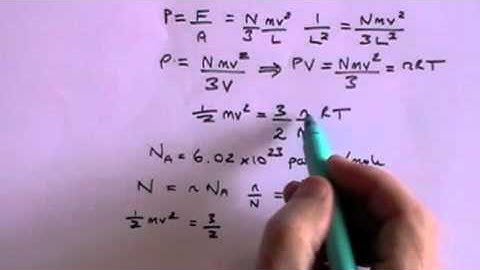 P = F/A = N/3 mv²/L 1/L² = Nmv²/3L²
P = Nmv²/3V ⟹ PV = Nmv²/3 = nRT
½mv² = 3/2 n RT
N_A = 6.02 × 10²³
N = n N_A n/N =
½mv² = 3/2